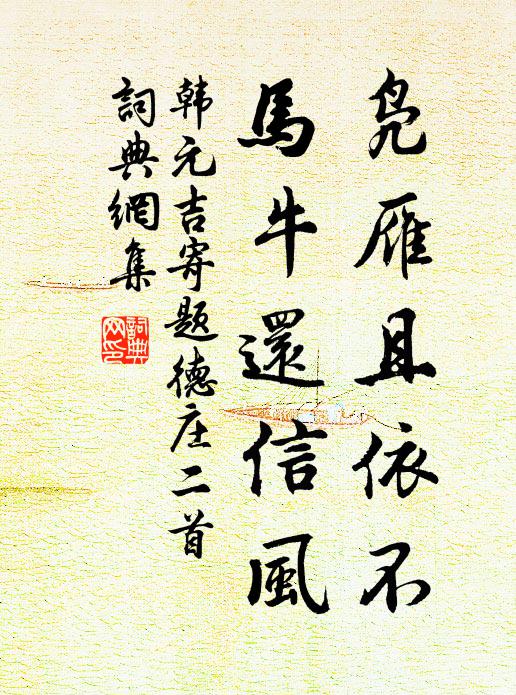 凫雁且依不
馬牛還信風
韩元吉寄題德庄二首
詞典網集
詞典网印